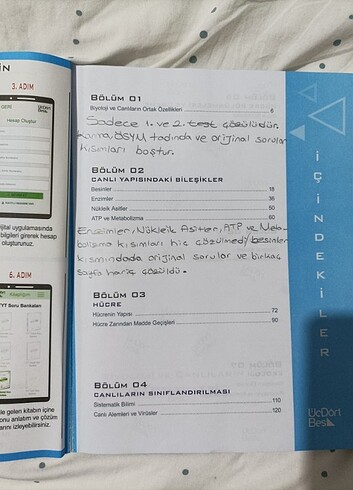 İN
3. ADIM
GERİ
ÜçDört
Beş
Hesap Oluştur
jital uygulamasında
bilgileri girerek hesap
oluşturunuz.
6. ADIM
YT Soru Bankaları
le gelen kitabın içine
onu anlatım ve çözüm
arını izleyebilirsiniz.
BÖLÜM 01
Biyoloji ve Canlıların Ortak Özellikleri 6
Sadece 1. ve 2. test çözülüdür.
Karma, ÖSYM tadında ve orijinal sorular
kısımları boştur.
BÖLÜM 02
CANLI YAPISINDAKİ BİLEŞİKLER
Besinler 18
Enzimler 38
Nükleik Asitler 50
ATP ve Metabolizma 60
Enzimler, Nükleik Asitler, ATP ve Meta-
bolizma kısımları hiç çözülmedi, besinler
kısmındada orijinal sorular ve birkaç
sayfa hariç çözüldü.
BÖLÜM 03
HÜCRE
Hücrenin Yapısı 72
Hücre Zarından Madde Geçişleri 90
BÖLÜM 04
CANLILARIN SINIFLANDIRILMASI
Sistematik Bilimi 110
Canlı Alemleri ve Virüsler 120
İÇİNDEKİLER
ÜçDört
Beş